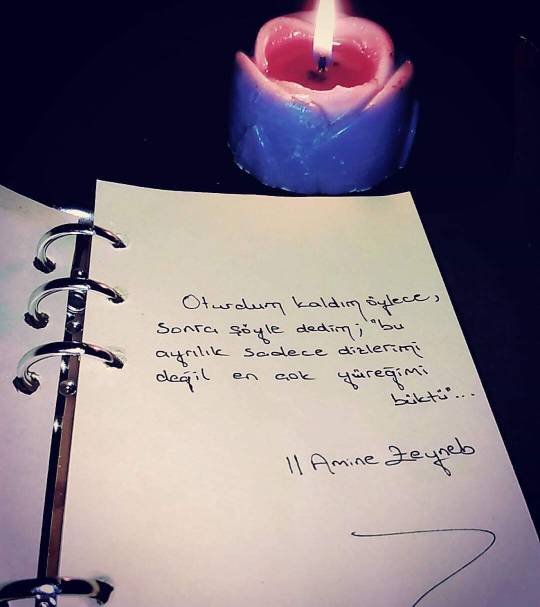 Oturdum kaldım öylece,
sonra şöyle dedim; "bu
ayrılık sadece dizlerimi
değil en çok yüreğimi
büktü"...
|| Amine Zeyneb